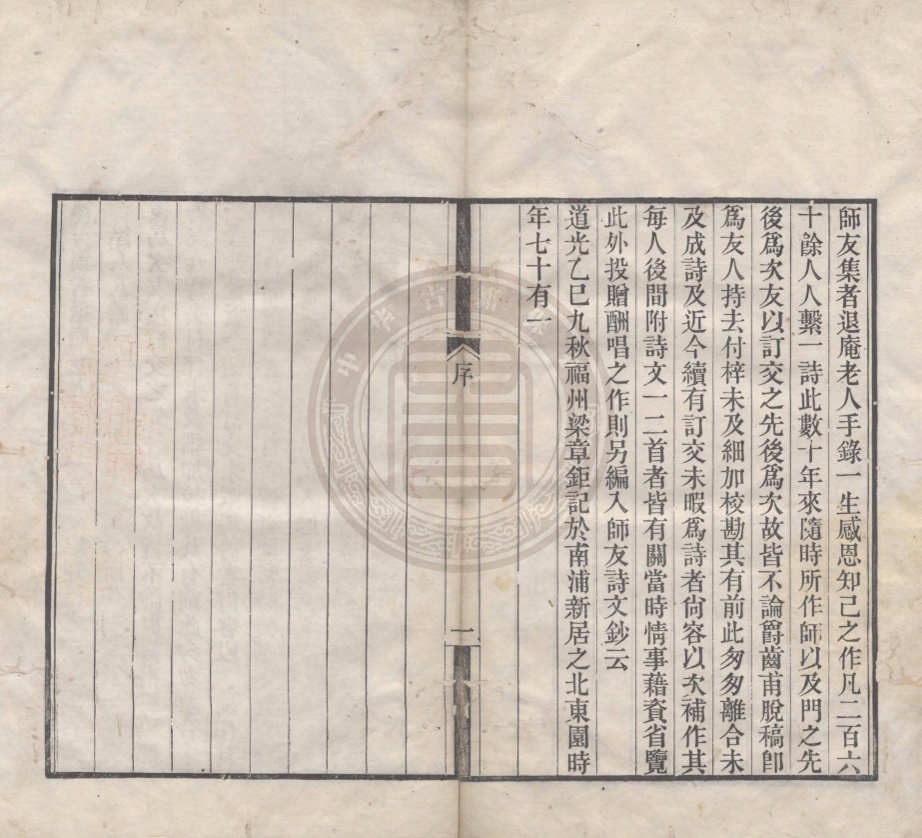 師友集者退庵老人手錄一生感恩知己之作凡二百六
十餘人人繫一詩此數十年來隨時所作師以及門之先
後爲次友以訂交之先後爲次故皆不論爵齒甫脫稿卽
爲友人持去付梓未及細加校勘其有前此匆匆離合未
及成詩及近今續有訂交未暇爲詩者尙容以次補作其
每人後間附詩文一二首者皆有關當時情事藉資省覽
此外投贈酬唱之作則另編入師友詩文鈔云
道光乙巳九秋福州梁章鉅記於南浦新居之北東園時
年七十有一
序
一